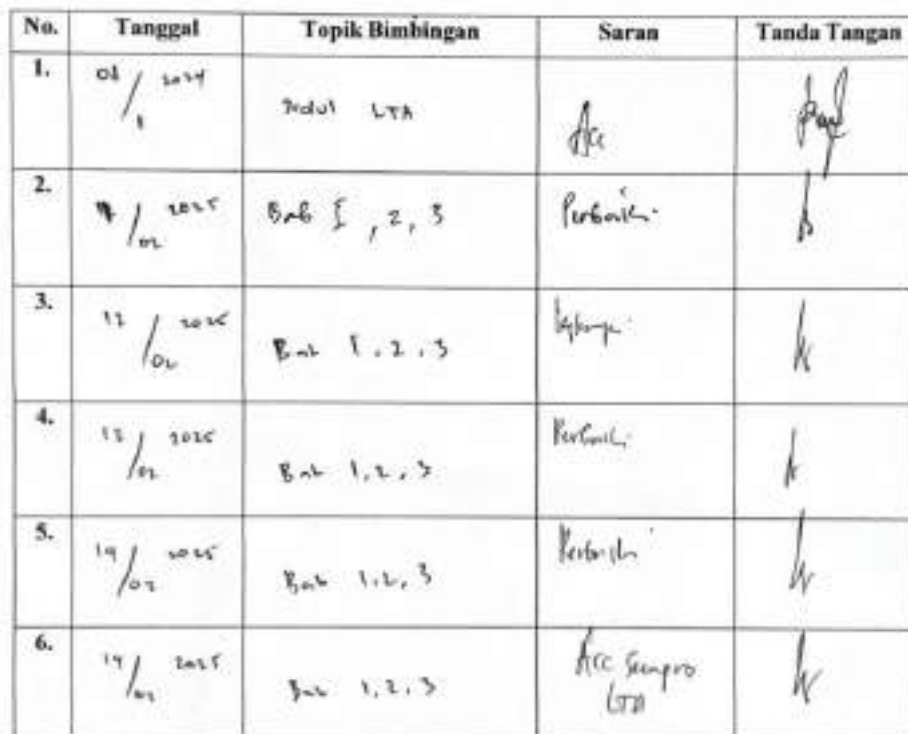 No. Tanggal Topik Bimbingan Saran Tanda Tangan
1. 2024 Judul LTA Acc
2. 2025 / 02 Bab I, 2, 3 Perbaiki
3. 12 / 02 2025 Bab 1, 2, 3 lengkapi
4. 2025 / 02 Bab 1, 2, 3 Perbaiki
5. 2025 Bab 1, 2, 3 Perbaiki
6. 2025 Bab 1, 2, 3 Acc Sempro
LTA